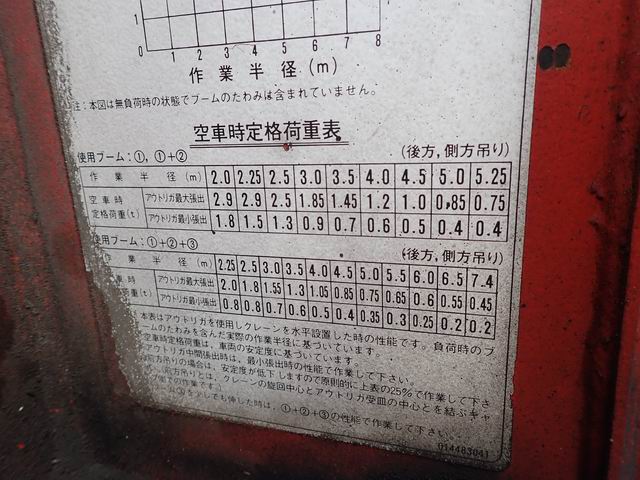 1
0 1 2 3 4 5 6 7 8
作業半径(m)
注:本図は無負荷時の状態でブームのたわみは含まれていません。
空車時定格荷重表
使用ブーム:①,①+② (後方,側方吊り)
作業半径(m) 2.0 2.25 2.5 3.0 3.5 4.0 4.5 5.0 5.25
空車時 アウトリガ最大張出 2.9 2.9 2.5 1.85 1.45 1.2 1.0 0.85 0.75
定格荷重(t) アウトリガ最小張出 1.8 1.5 1.3 0.9 0.7 0.6 0.5 0.4 0.4
使用ブーム:①+②+③ (後方,側方吊り)
業半径(m) 2.25 2.5 3.0 3.5 4.0 4.5 5.0 5.5 6.0 6.5 7.4
車時 アウトリガ最大張出 2.0 1.8 1.55 1.3 1.05 0.85 0.75 0.65 0.6 0.55 0.45
荷重(t) アウトリガ最小張出 0.8 0.8 0.7 0.6 0.5 0.4 0.35 0.3 0.25 0.2 0.2
本表はアウトリガを使用しクレーンを水平設置した時の性能です。負荷時のブ
ームのたわみを含んだ実際の作業半径に基づいています。
空車時定格荷重は、車両の安定度に基づいています。
アウトリガ中間張出時は、最小張出時の性能で作業して下さい。
前方吊りの場合は、安定度が低下しますので原則的に上表の25%で作業して下さ
(前方吊りとは、クレーンの旋回中心とアウトリガ受皿の中心とを結ぶキャ
側での作業です。)
を少しでも伸した時は、①+②+③の性能で作業して下さい。
014483041